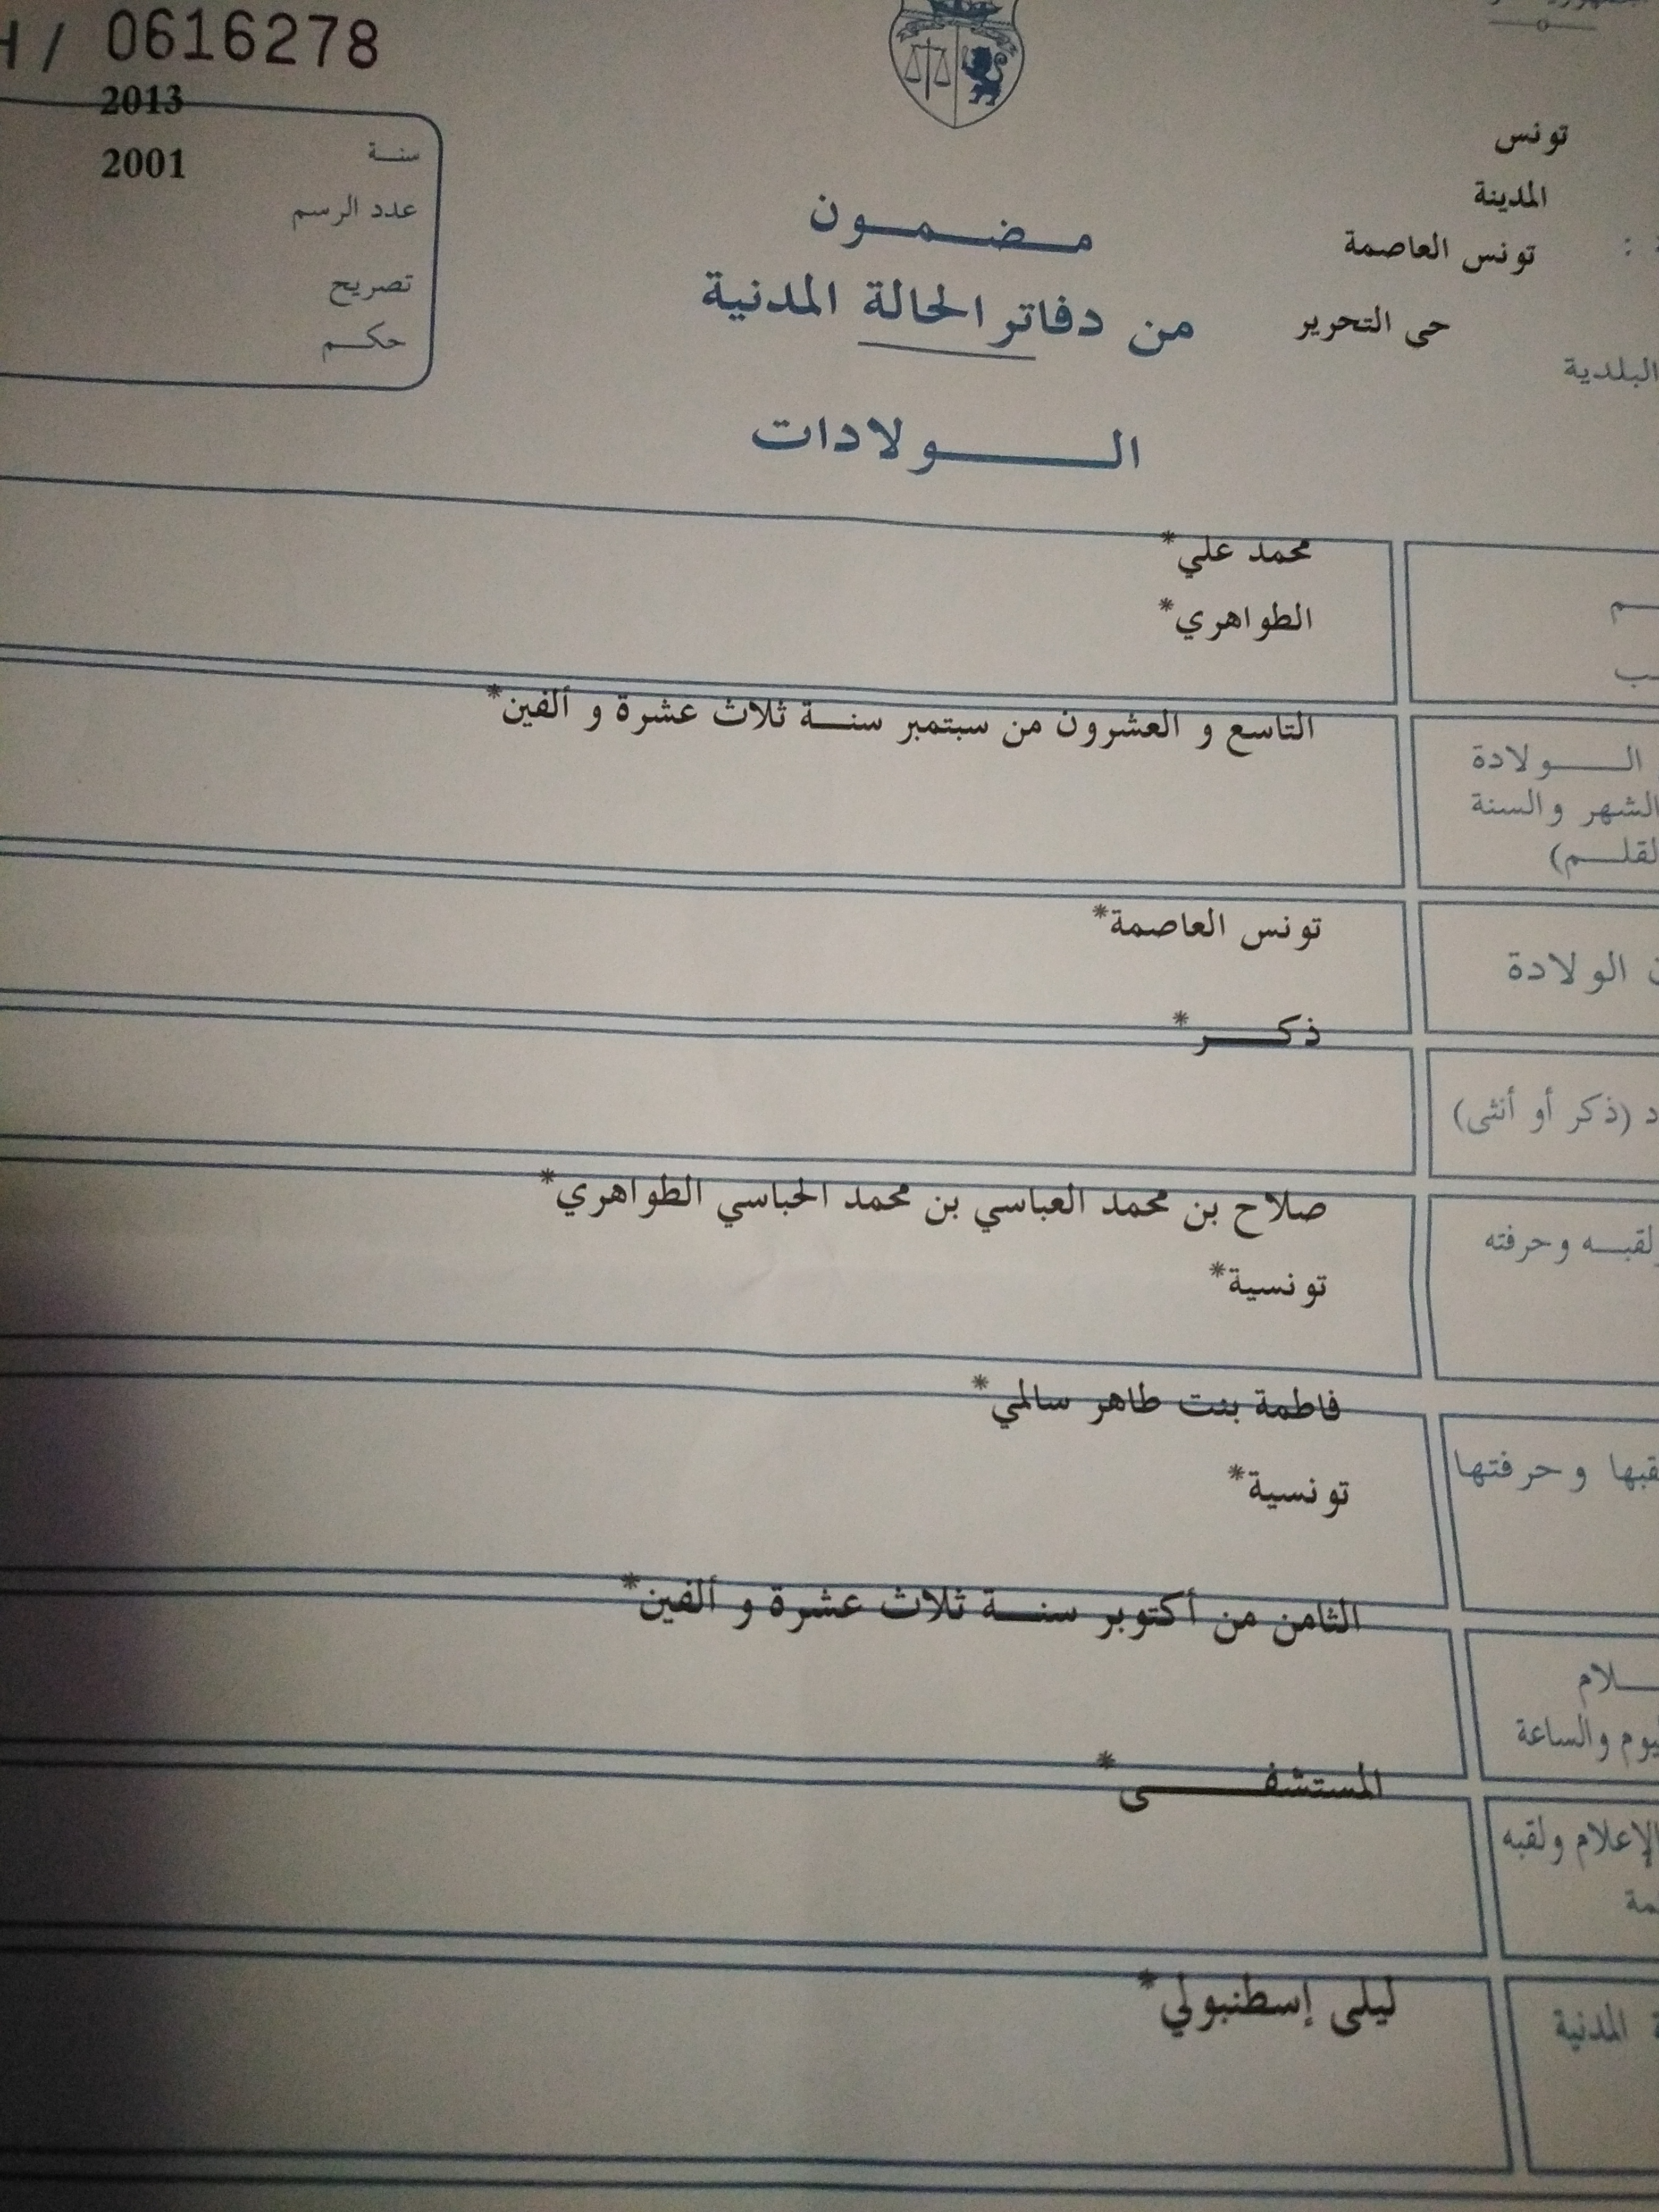 / 0616278
2013
سنة
2001
عدد الرسم
تصريح
حكم
تونس
المدينة
تونس العاصمة
حى التحرير
البلدية
مضمون
من دفاتر الحالة المدنية
الولادات
محمد علي*
الطواهري*
التاسع و العشرون من سبتمبر سنة ثلاث عشرة و ألفين*
الولادة
الشهر والسنة
تونس العاصمة*
الولادة
ذكر*
(ذكر أو أنثى)
صلاح بن محمد العباسي بن محمد الحباسي الطواهري*
لقبه وحرفته
تونسية*
فاطمة بنت طاهر سالمي*
وحرفتها
تونسية*
الثامن من أكتوبر سنة ثلاث عشرة و ألفين*
والساعة
المستشفى*
الإعلام ولقبه
ليلى إسطنبولي*
المدنية